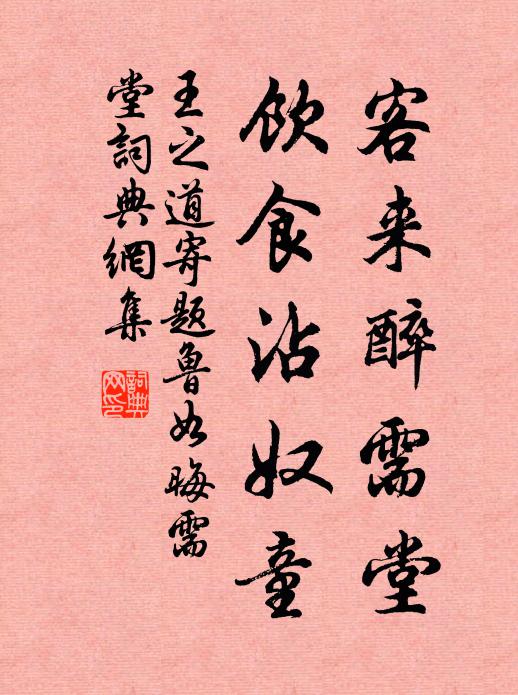 客来醉需堂
飲食沾奴童
王之道寄题魯如晦需
堂詞典網集
詞典网印